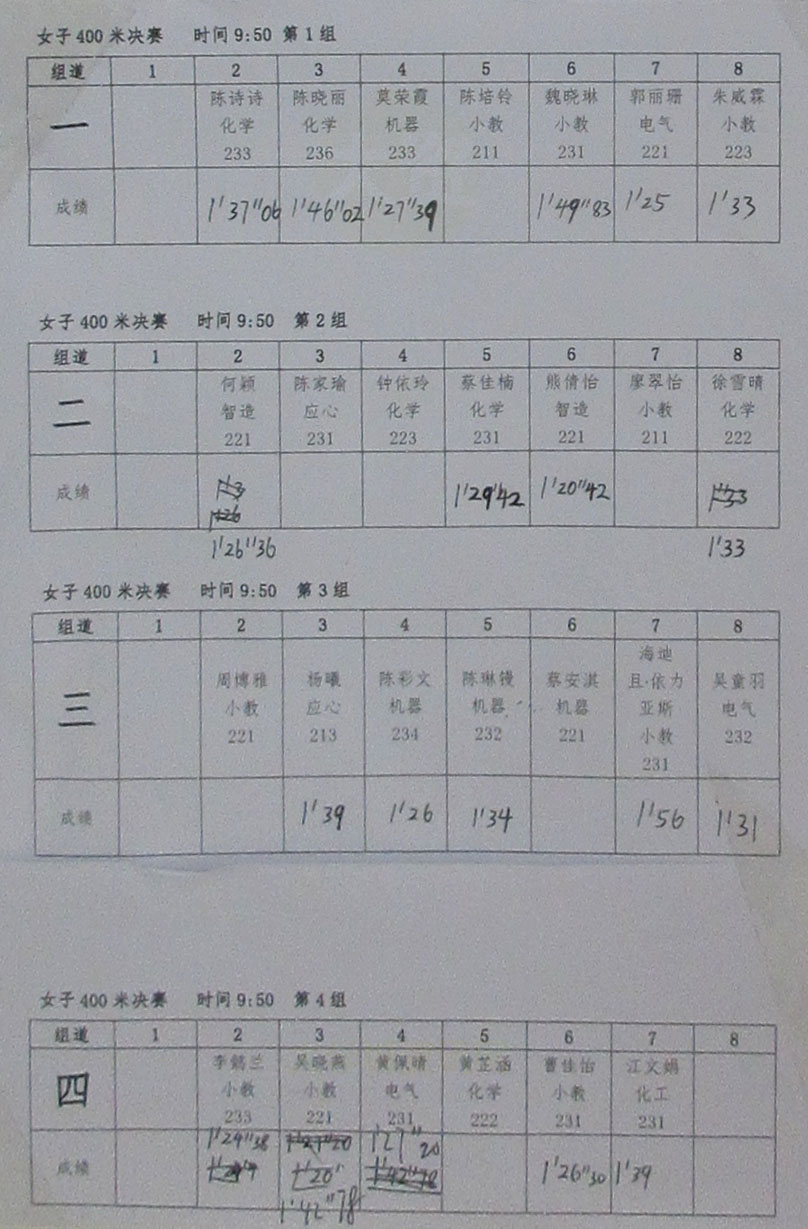 女子400米决赛 时间9:50 第1组
组道 1 2 3 4 5 6 7 8
一 陈诗诗 陈晓丽 莫荣霞 陈培铃 魏晓琳 郭丽珊 朱威霖
化学 化学 机器 小教 小教 电气 小教
233 236 233 211 231 221 223
成绩 1'37"06 1'46"02 1'27"39 1'49"83 1'25 1'33
女子400米决赛 时间9:50 第2组
组道 1 2 3 4 5 6 7 8
二 何颖 陈家瑜 钟依玲 蔡佳楠 熊倩怡 廖翠怡 徐雪晴
智造 应心 化学 化学 智造 小教 化学
221 231 223 231 221 211 222
成绩 1'29"42 1'20"42 1'33
1'26
1'26"36 1'33
女子400米决赛 时间9:50 第3组
组道 1 2 3 4 5 6 7 8
三 周博雅 杨曦 陈彩文 陈琳镘 蔡安淇 海迪且·依力亚斯 吴童羽
小教 应心 机器 机器 机器 小教 电气
221 213 234 232 221 231 232
成绩 1'39 1'26 1'34 1'56 1'31
女子400米决赛 时间9:50 第4组
组道 1 2 3 4 5 6 7 8
四 李懿兰 吴晓燕 黄佩晴 黄芷涵 曹佳怡 江文娟
小教 小教 电气 化学 小教 化工
233 221 231 222 231 231
1'29"38 1'27"20 1'27"20
成绩 1'20 1'42"78 1'26"30 1'39
1'42"78